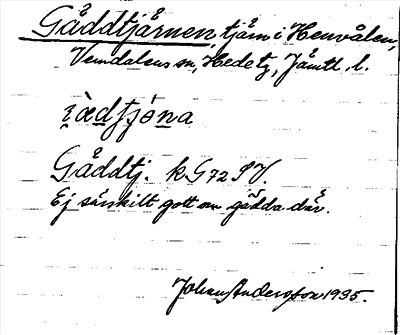 Gåddtjårnen, tjärn i Henvålen,
Vemdalens sn, Hede tg, Jämtl. l.
Gåddtj. k G72 SV.
Ej särskilt gott om gädda där.
Johan Andersson 1935.